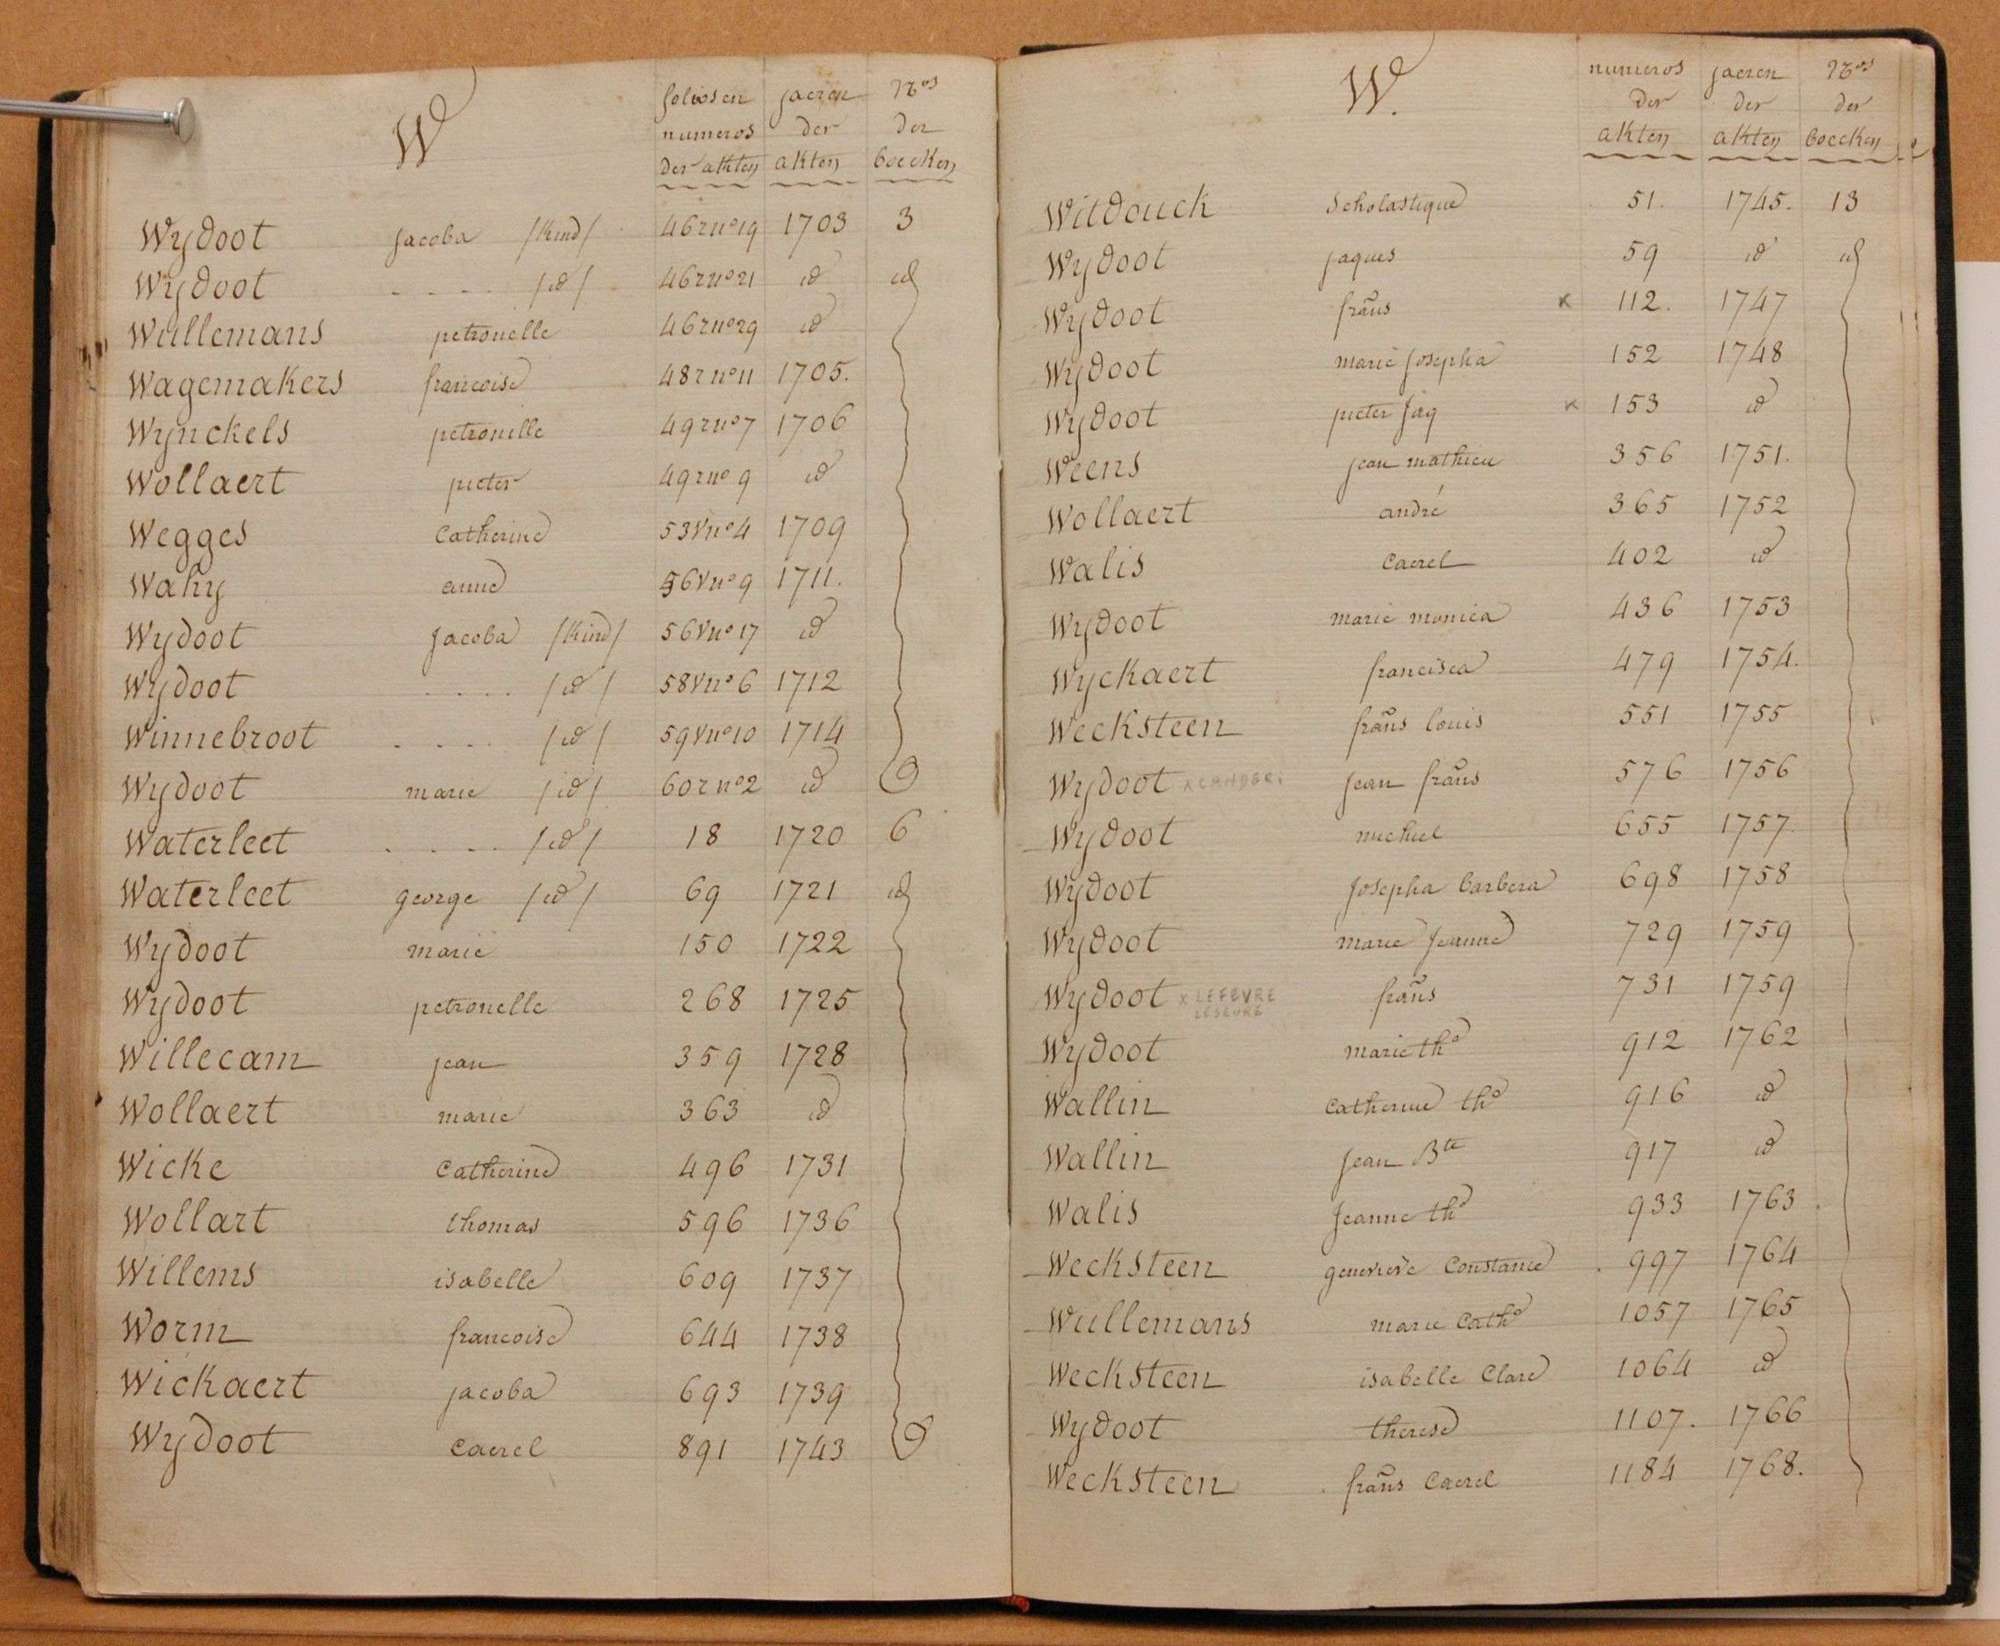 W
foliosen jaeren Nos
numeros der der
der akten akten boecken
Wydoot jacoba /kind/ 46r no 19 1703 3
Wydoot . . . . . /id/ 46r no 21 id id
Wullemans petronelle 46r no 29 id
Wagemakers francoise 48r no 11 1705.
Wynckels petronille 49r no 7 1706
Wollaert pieter 49r no 9 id
Wegges Catherine 53v no 4 1709
Wahy anne 56v no 9 1711.
Wydoot jacoba /kind/ 56v no 17 id
Wydoot . . . . . /id/ 58v no 6 1712
Winnebroot . . . . . /id/ 59v no 10 1714
Wydoot marie /id/ 60r no 2 id
Waterleet . . . . . /id/ 18 1720 6
Waterleet george /id/ 69 1721 id
Wydoot marie 150 1722
Wydoot petronelle 268 1725
Willecam jean 359 1728
Wollaert marie 363 id
Wicke Catherine 496 1731
Wollart thomas 596 1736
Willems isabelle 609 1737
Worm francoise 644 1738
Wickaert jacoba 693 1739
Wydoot Caerel 891 1743
W.
numeros jaeren Nos
der der der
akten akten boecken
Witdouck Scholastique 51. 1745. 13
Wydoot jaques 59 id id
Wydoot frans x 112. 1747
Wydoot marie josepha 152 1748
Wydoot pieter jaq x 153 id
Weens jean mathieu 356 1751.
Wollaert andré 365 1752
Walis Caerel 402 id
Wydoot marie monica 436 1753
Wyckaert francisca 479 1754.
Wecksteen frans louis 551 1755
Wydoot jean frans 576 1756
Wydoot michiel 655 1757.
Wydoot josepha barbera 698 1758
Wydoot marie jeanne 729 1759
Wydoot x LEFEBVRE frans 731 1759
Wydoot marie the 912 1762
Wallin Catherine the 916 id
Wallin jean Bte 917 id
Walis jeanne the 933 1763.
Wecksteen genevieve Constance 997 1764
Wullemans marie Cathe 1057 1765
Wecksteen isabelle Clare 1064 id
Wydoot therese 1107. 1766
Wecksteen frans Caerel 1184 1768.